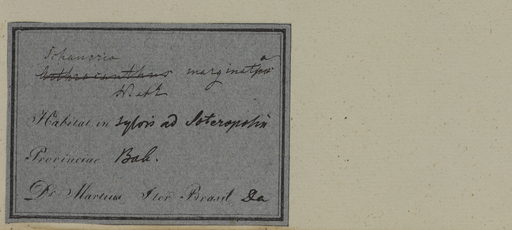 Schaueria
marginata
Habitat in sylvis ad Soteropolin
Provinciae Bah.
Dr. Martius Iter Brasil.